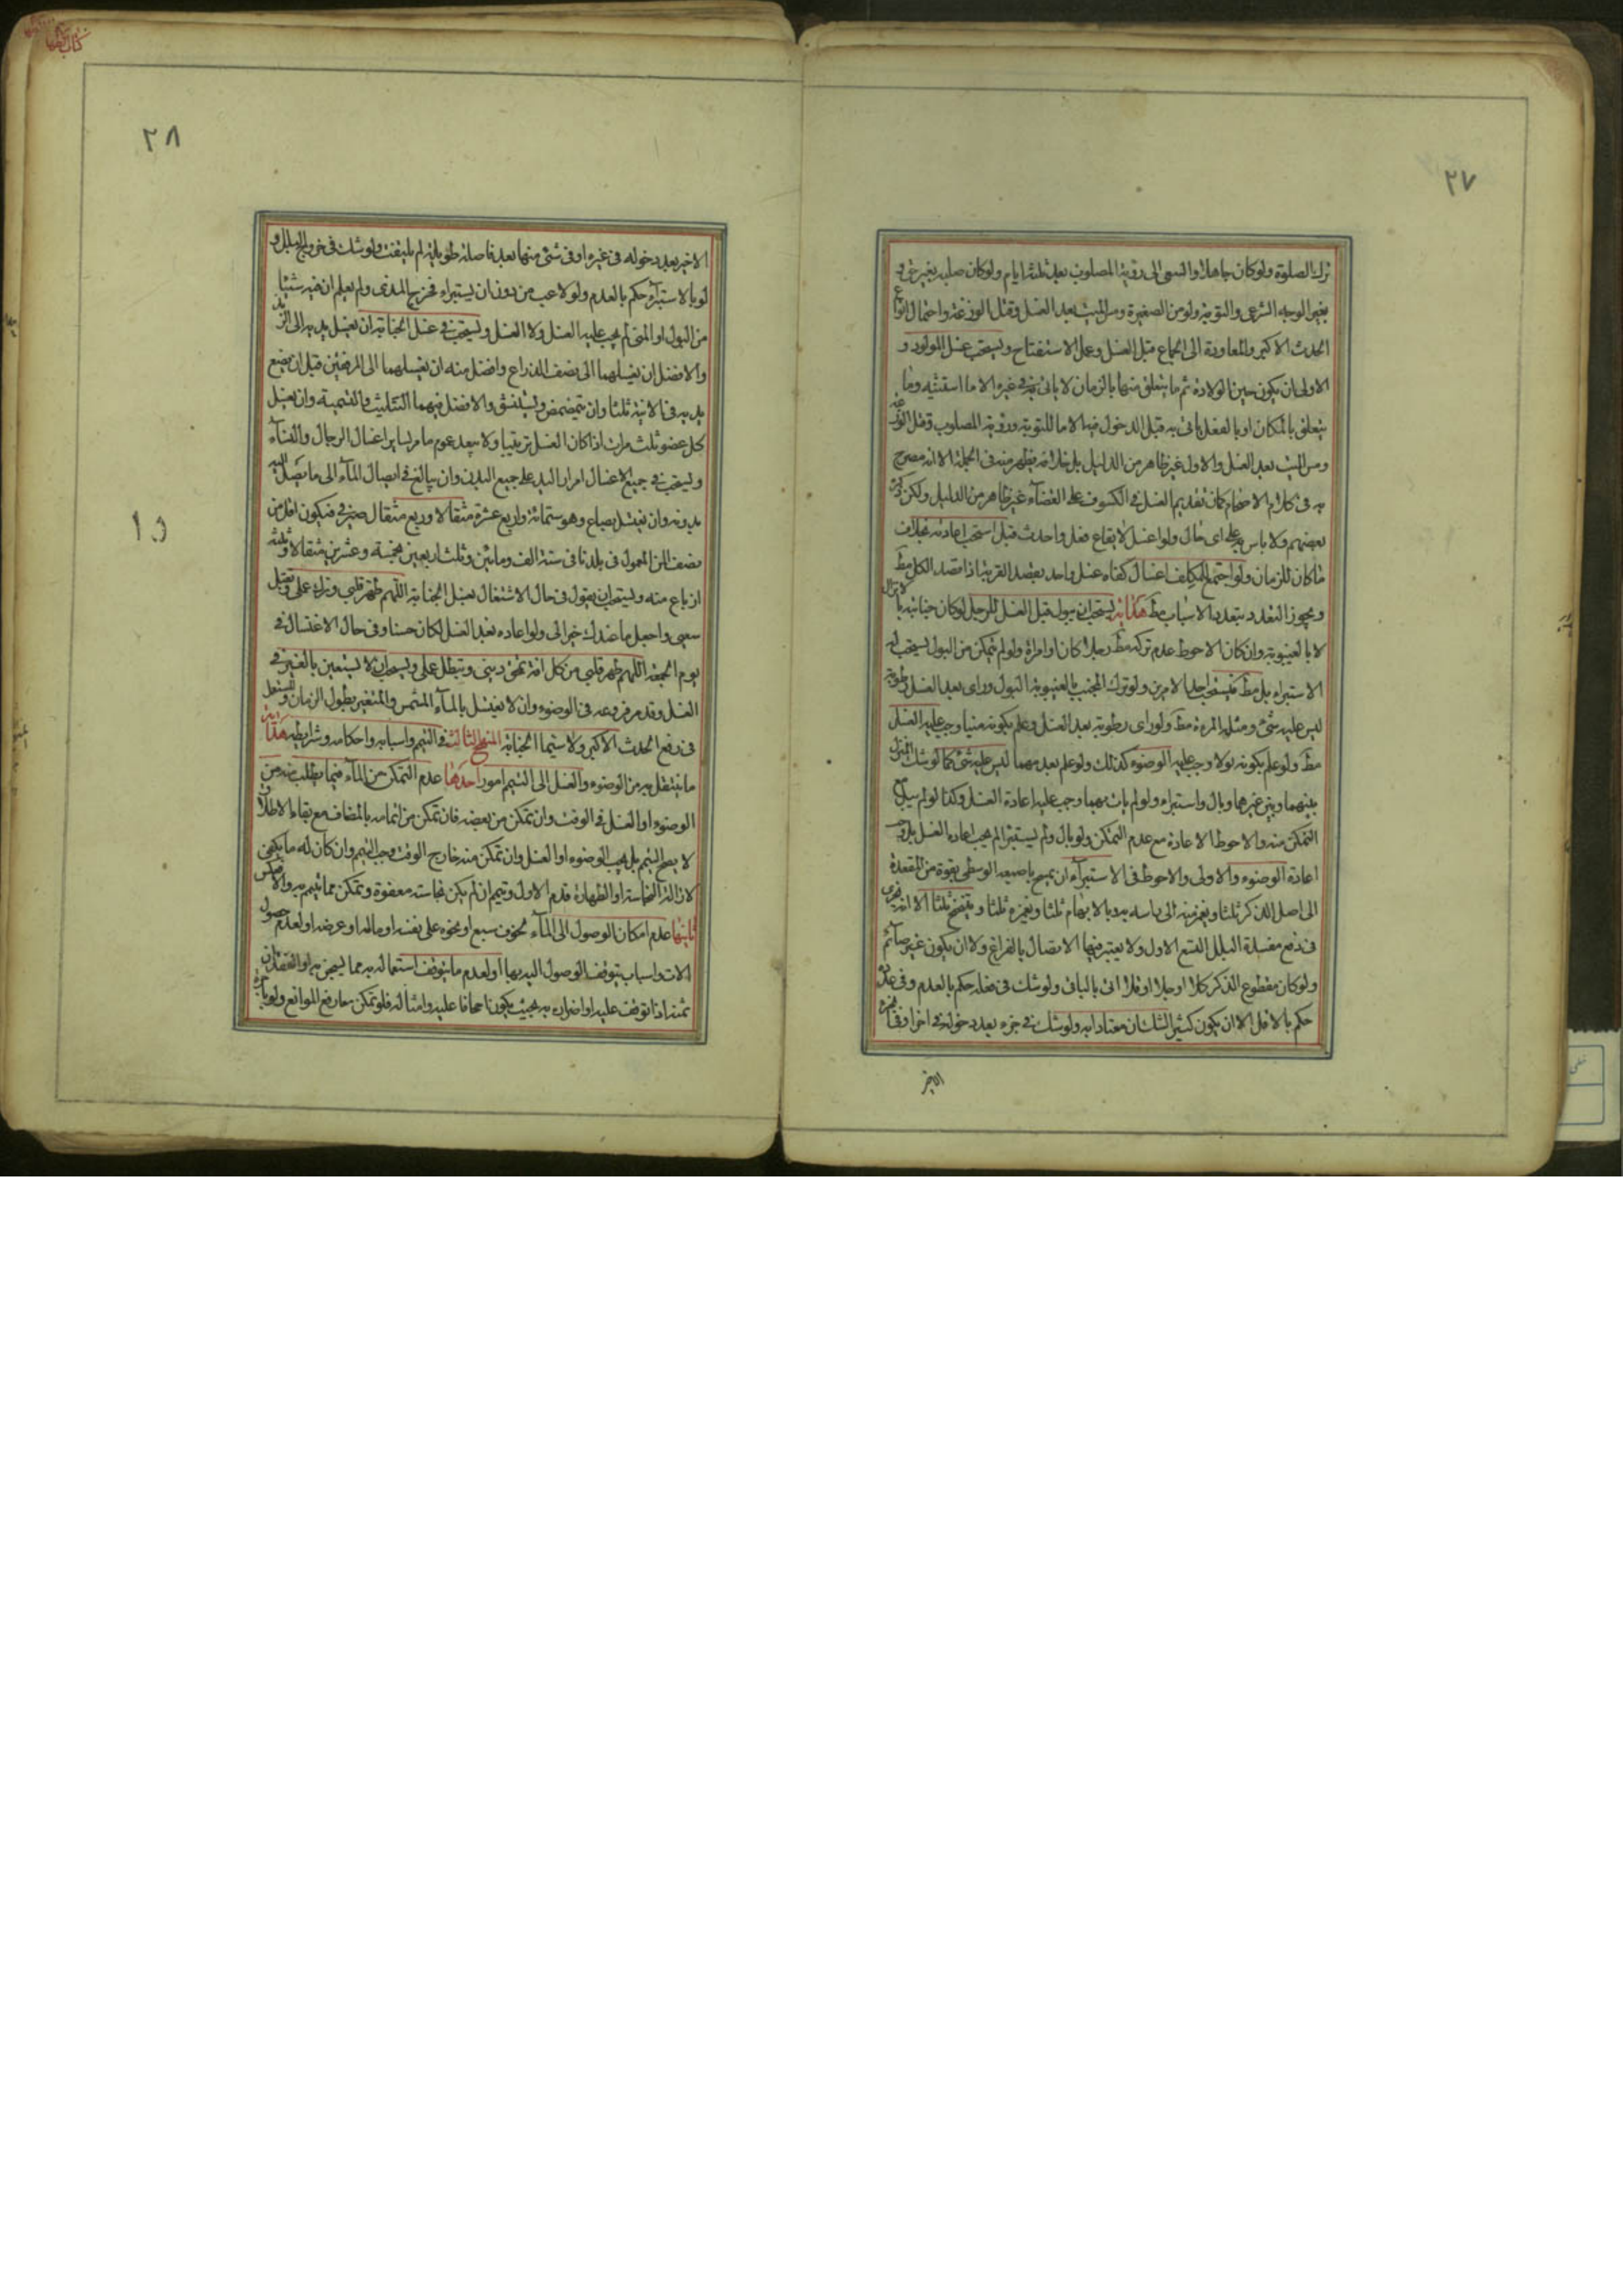 ٢٧
ترك الصلوة ولو كان جاهلا والسعى الى رؤية المصلوب بعد ثلثة ايام ولو كان صلبه بغير حق و
بغير الوجه الشرعى والتوبة ولو من الصغيرة ومس الميت بعد الغسل وقتل الوزغة واحتمال انواع
الحدث الاكبر والمعاودة الى الجماع قبل الغسل وعمل الاستفتاح ويستحب غسل المولود و
الاولى ان يكون حين الولادة ثم ما يتعلق منها بالزمان لا ياتى به فى غيره الا ما استثنيه وما
يتعلق بالمكان او بالفعل ياتى به قبل الدخول فيه الا ما للتوبة ورؤية المصلوب وقتل الوزغة
ومس الميت بعد الغسل والاول غير ظاهر من الدليل بل خلافه يظهر منه فى الجملة الا انه مصرح
به فى كلام الاصحاب كما ان تقديم الغسل فى الكسوف على القضاء غير ظاهر من الدليل ولكن ذكره
بعضهم ولا باس به على اى حال ولو اغتسل لايقاع فعل واحدث قبله استحب اعادته بخلاف
ما كان للزمان ولو اجتمع للمكلف اغسال كفاه غسل واحد بقصد القربة اذا قصد الكل مط
ويجوز التعدد بتعدد الاسباب مط هداية يستحب ان يبول قبل الغسل للرجل لو كان جنابته بالانزال
لا بالغيبوبة وان كان الاحوط عدم تركه مط رجلا كان او امراة ولو لم يتمكن من البول يستحب له
الاستبراء بل مط فيستحب الامرين ولو ترك المجنب بالغيبوبة البول وراى بعد الغسل رطوبة
ليس عليه شئ ومثله المرءة مط ولو راى رطوبة بعد الغسل وعلم بكونه منيا وجب عليه الغسل
مط ولو علم بكونه بولا وجب عليه الوضوء كذلك ولو علم بعدمهما ليس عليه شئ كما لو شك المنزل
بينهما وبين غيرهما وبال واستبراء ولو لم يات بهما وجب عليه اعادة الغسل وكذا لو لم يبل مع
التمكن منه والاحوط الاعادة مع عدم التمكن ولو بال ولم يستبرا لم يجب اعادة الغسل بل وجب
اعادة الوضوء والاولى والاحوط فى الاستبراء ان يمسح باصبعه الوسطى بقوة من المقعدة
الى اصل الذكر ثلثا ويغمز منه الى راسه به وبالابهام ثلثا ويغمزه ثلثا ويتنحنح ثلثا الا انه يجزى
فى دفع مفسدة البلل التسع الاول ولا يعتبر فيها الاتصال بالفراغ ولا ان يكون غير صائم
ولو كان مقطوع الذكر كلا او جلا او قلا اتى بالباقى ولو شك فى فعله حكم بالعدم وفى عدده
حكم بالاقل الا ان يكون كثير الشك معتادا به ولو شك فى جزء بعد دخوله فى اخر او فى الجزء
الاخير
٢٨
الاخير بعد دخوله فى غيره او فى شئ منها بعد فاصلة طويلة لم يلتفت ولو شك فى خروج البلل و
لو بالاستبراء حكم بالعدم ولو لاعب من دون ان يستبراء فخرج المذى ولم يعلم ان فيه شيئا
من البول او المنى لم يجب عليه الغسل ولا الغسل ويستحب فى غسل الجنابة ان يغسل يديه الى الزند
والافضل ان يغسلهما الى نصف الذراع وافضل منه ان يغسلهما الى المرفقين قبل ان يضع
يديه فى الانية ثلثا وان يتمضمض ويستنشق والافضل فيهما التثليث والتسمية وان يغسل
كل عضو ثلث مرات اذا كان الغسل ترتيبا ولا يبعد عموم ما مر لساير اغسال الرجال والنساء
ويستحب فى جميع الاغسال امرار اليد على جميع البدن وان يبالغ فى ايصال الماء الى ما يصل اليه
بدونه وان يغتسل بصاع وهو ستمائة واربع عشرة مثقالا وربع مثقال صيرفى فيكون اقل من
نصف المن المعمول فى بلدنا فى سنة الف ومائتين وثلث اربعين بخمسة وعشرين مثقالا وثلثة
ارباع منه ويستحب ان يقول فى حال الاشتغال بغسل الجنابة اللهم طهر قلبى وزك عملى وتقبل
سعيى واجعل ما عندك خيرا لى ولو اعاده بعد الغسل لكان حسنا وفى حال الاغتسال فى
يوم الجمعة اللهم طهر قلبى من كل افة تمحق دينى وتبطل عملى ويستحب ان لا يستعين بالغير فى
الغسل وقد مر فروعه فى الوضوء وان لا يغتسل بالماء المشمس والمتغير بطول الزمان والمستعمل
فى رفع الحدث الاكبر ولا سيما الجنابة المنهج الثالث فى التيمم واسبابه واحكامه وشرايطه هداية
ما ينتقل به من الوضوء والغسل الى التيمم امور احدها عدم التمكن من الماء فيما يطلب منه من
الوضوء او الغسل فى الوقت وان تمكن من بعضه فان تمكن من اتمامه بالمضاف مع بقاء الاطلاق
لا يصح التيمم بل يجب الوضوء او الغسل وان تمكن منه خارج الوقت وجب التيمم وان كان له ما يكفى
لازالة النجاسة او الطهارة قدم الاول وتيمم ان لم يكن نجاسته معفوة وتمكن مما يتيمم به والا عكس
ثانيها عدم امكان الوصول الى الماء لخوف سبع او نحوه على نفسه او ماله او عرضه او لعدم حصول
الات واسباب يتوقف الوصول اليه بها او لعدم ما يتوقف استعماله به مما يسجن به او لفقدان
ثمنه اذا توقف عليه او اضراره به بحيث يكون اجحافا عليه وامثاله فلو تمكن من رفع الموانع ولو باجرة
١٥